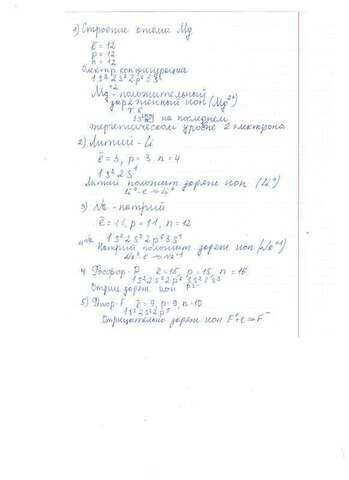 1) Строение атома Mg
ē = 12
p = 12
n = 12
Электр. конфигурация
1s²2s²2p⁶3s²
Mg⁺² - положительный
заряженный ион (Mg²⁺)
т.к.
на последнем
энергетическом уровне 2 электрона
2) Литий - Li
ē = 3, p = 3 n = 4
1s²2s¹
Литий положит. заряж ион (Li⁺)
Li⁰-e → Li⁺
3) Na - натрий
ē = 11, p = 11, n = 12
1s²2s²2p⁶3s¹
Натрий положит заряж ион (Na⁺¹)
Na⁰-e → Na⁺¹
4 Фосфор - P ē = 15, p = 15, n = 16
1s²2s²2p⁶3s²3p³
заряж ион P³⁻
5) Фтор - F ē = 9, p = 9, n = 10
1s²2s²2p⁵
Отрицательно заряж ион F⁰+e → F⁻